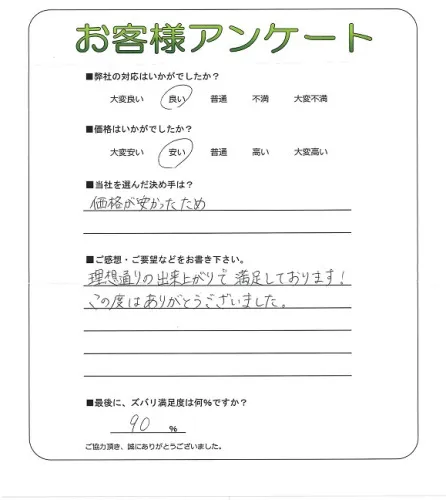 お客様アンケート
■弊社の対応はいかがでしたか?
大変良い 良い 普通 不満 大変不満
■価格はいかがでしたか?
大変安い 安い 普通 高い 大変高い
■当社を選んだ決め手は?
価格が安かったため
■ご感想・ご要望などをお書き下さい。
理想通りの出来上がりで満足しております!
この度はありがとうございました。
■最後に、ズバリ満足度は何%ですか?
90 %
ご協力頂き、誠にありがとうございました。